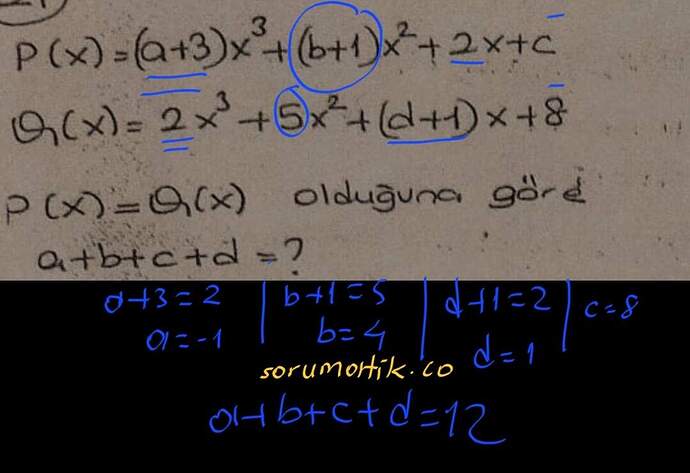 P(x)=(a+3)x³+(b+1)x²+2x+c
Q(x)=2x³+5x²+(d+1)x+8
P(x)=Q(x) olduğuna göre
a+b+c+d=?
a+3=2 | b+1=5 | d+1=2 | c=8
a=-1 b=4 d=1
sorumatik.co
a+b+c+d=12